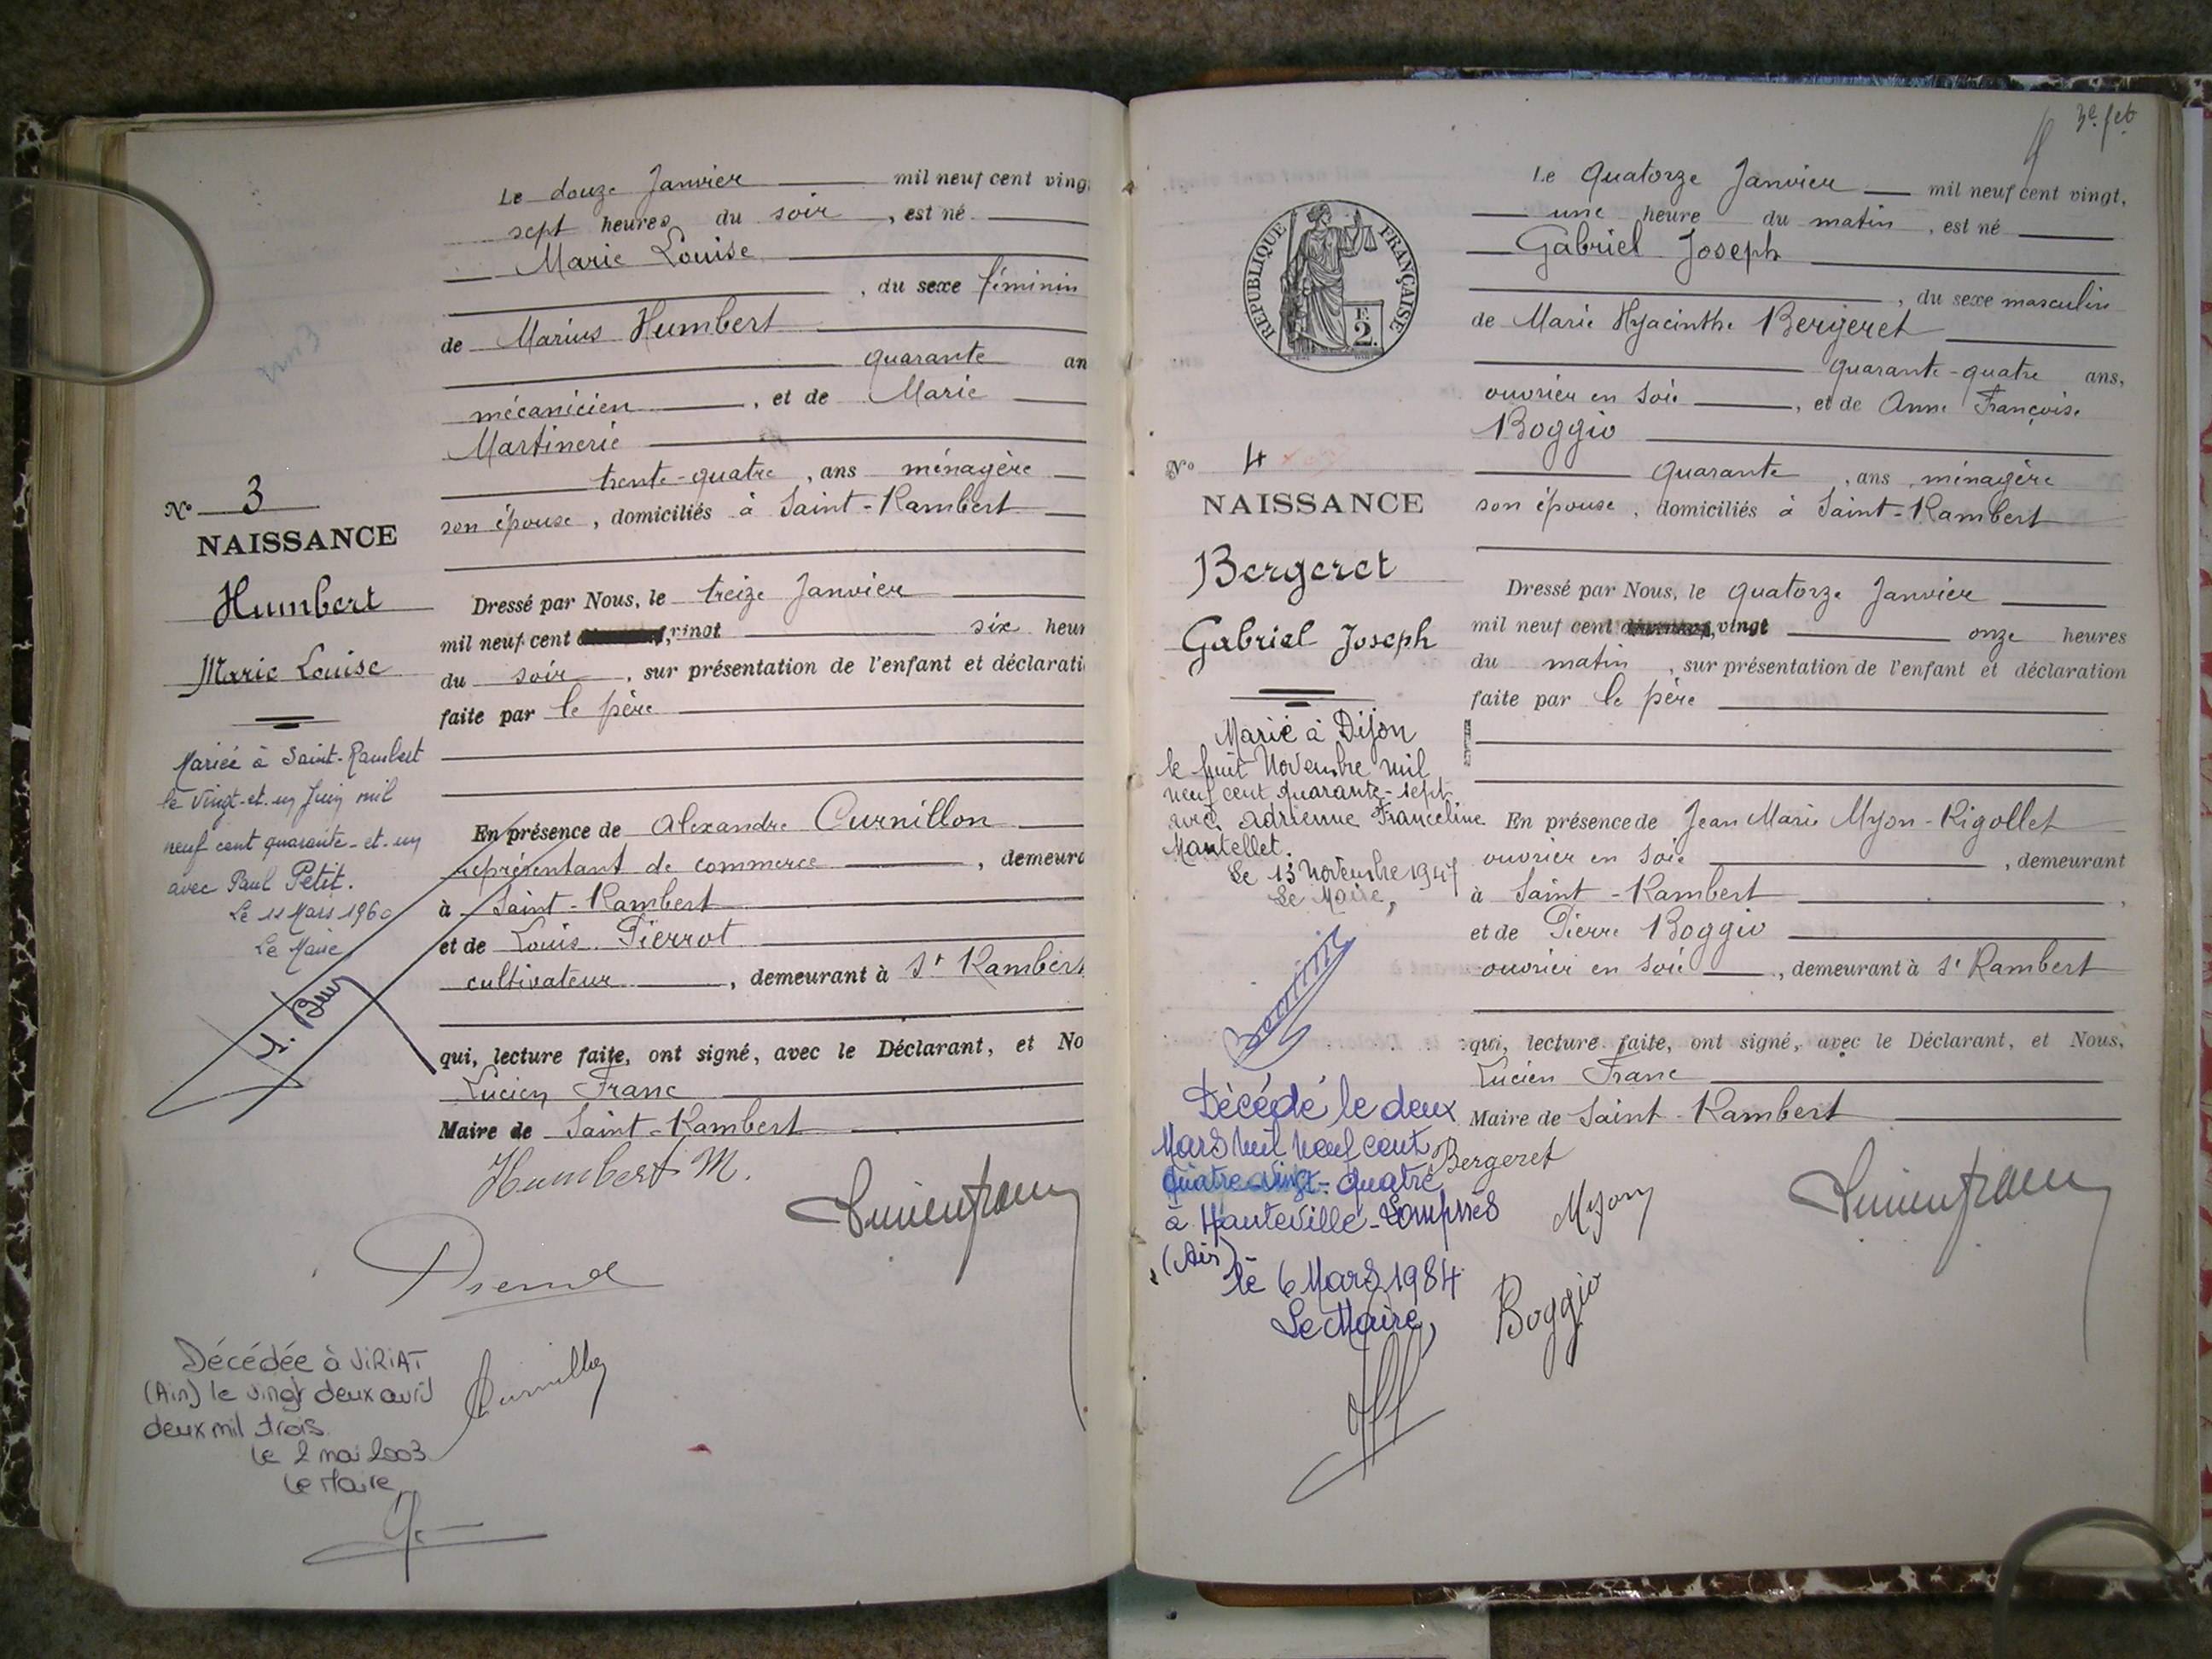 Le douze Janvier mil neuf cent vingt
sept heures du soir, est né
Marie Louise
, du sexe féminin
de Marius Humbert
quarante an
mécanicien, et de Marie
Martinerie
trente-quatre, ans ménagère
son épouse, domiciliés à Saint-Rambert
N° 3
NAISSANCE
Humbert
Marie Louise
Dressé par Nous, le treize Janvier
mil neuf cent vingt six heur
du soir, sur présentation de l'enfant et déclarati
faite par le père
Mariée à Saint-Rambert
le vingt-et-un Juin mil
neuf cent quarante-et-un
avec Paul Petit.
Le 11 Mars 1960
Le Maire,
En présence de Alexandre Curnillon
représentant de commerce, demeura
à Saint-Rambert
et de Louis Pierrot
cultivateur, demeurant à St Rambert
qui, lecture faite, ont signé, avec le Déclarant, et No
Lucien Franc
Maire de Saint-Rambert
Humbert M.
Lucien Franc
Décédée à VIRIAT
(Ain) le vingt deux avril
deux mil trois
le 2 mai 2003
Le Maire
3e fet
Le Quatorze Janvier mil neuf cent vingt,
une heure du matin, est né
Gabriel Joseph
, du sexe masculin
de Marie Hyacinthe Bergeret
quarante-quatre ans,
ouvrier en soie, et de Anne Françoise
Boggio
quarante, ans ménagère
son épouse, domiciliés à Saint-Rambert
REPUBLIQUE FRANÇAISE
F.
2.
N° 4
NAISSANCE
Bergeret
Gabriel Joseph
Dressé par Nous, le quatorze Janvier
mil neuf cent vingt onze heures
du matin, sur présentation de l'enfant et déclaration
faite par le père
Marié à Dijon
le huit Novembre mil
neuf cent quarante-sept
avec Adrienne Franceline
Mantellet.
Le 13 Novembre 1947
Le Maire,
En présence de Jean Marie Myon-Rigollet
ouvrier en soie, demeurant
à Saint-Rambert,
et de Pierre Boggio
ouvrier en soie, demeurant à St Rambert
qui, lecture faite, ont signé, avec le Déclarant, et Nous,
Lucien Franc
Maire de Saint-Rambert
Décédé le deux
Mars mil neuf cent
quatre-vingt-quatre
à Hauteville-Lompnes
(Ain)
le 6 Mars 1984
Le Maire,
Bergeret
Myon
Lucien Franc
Boggio